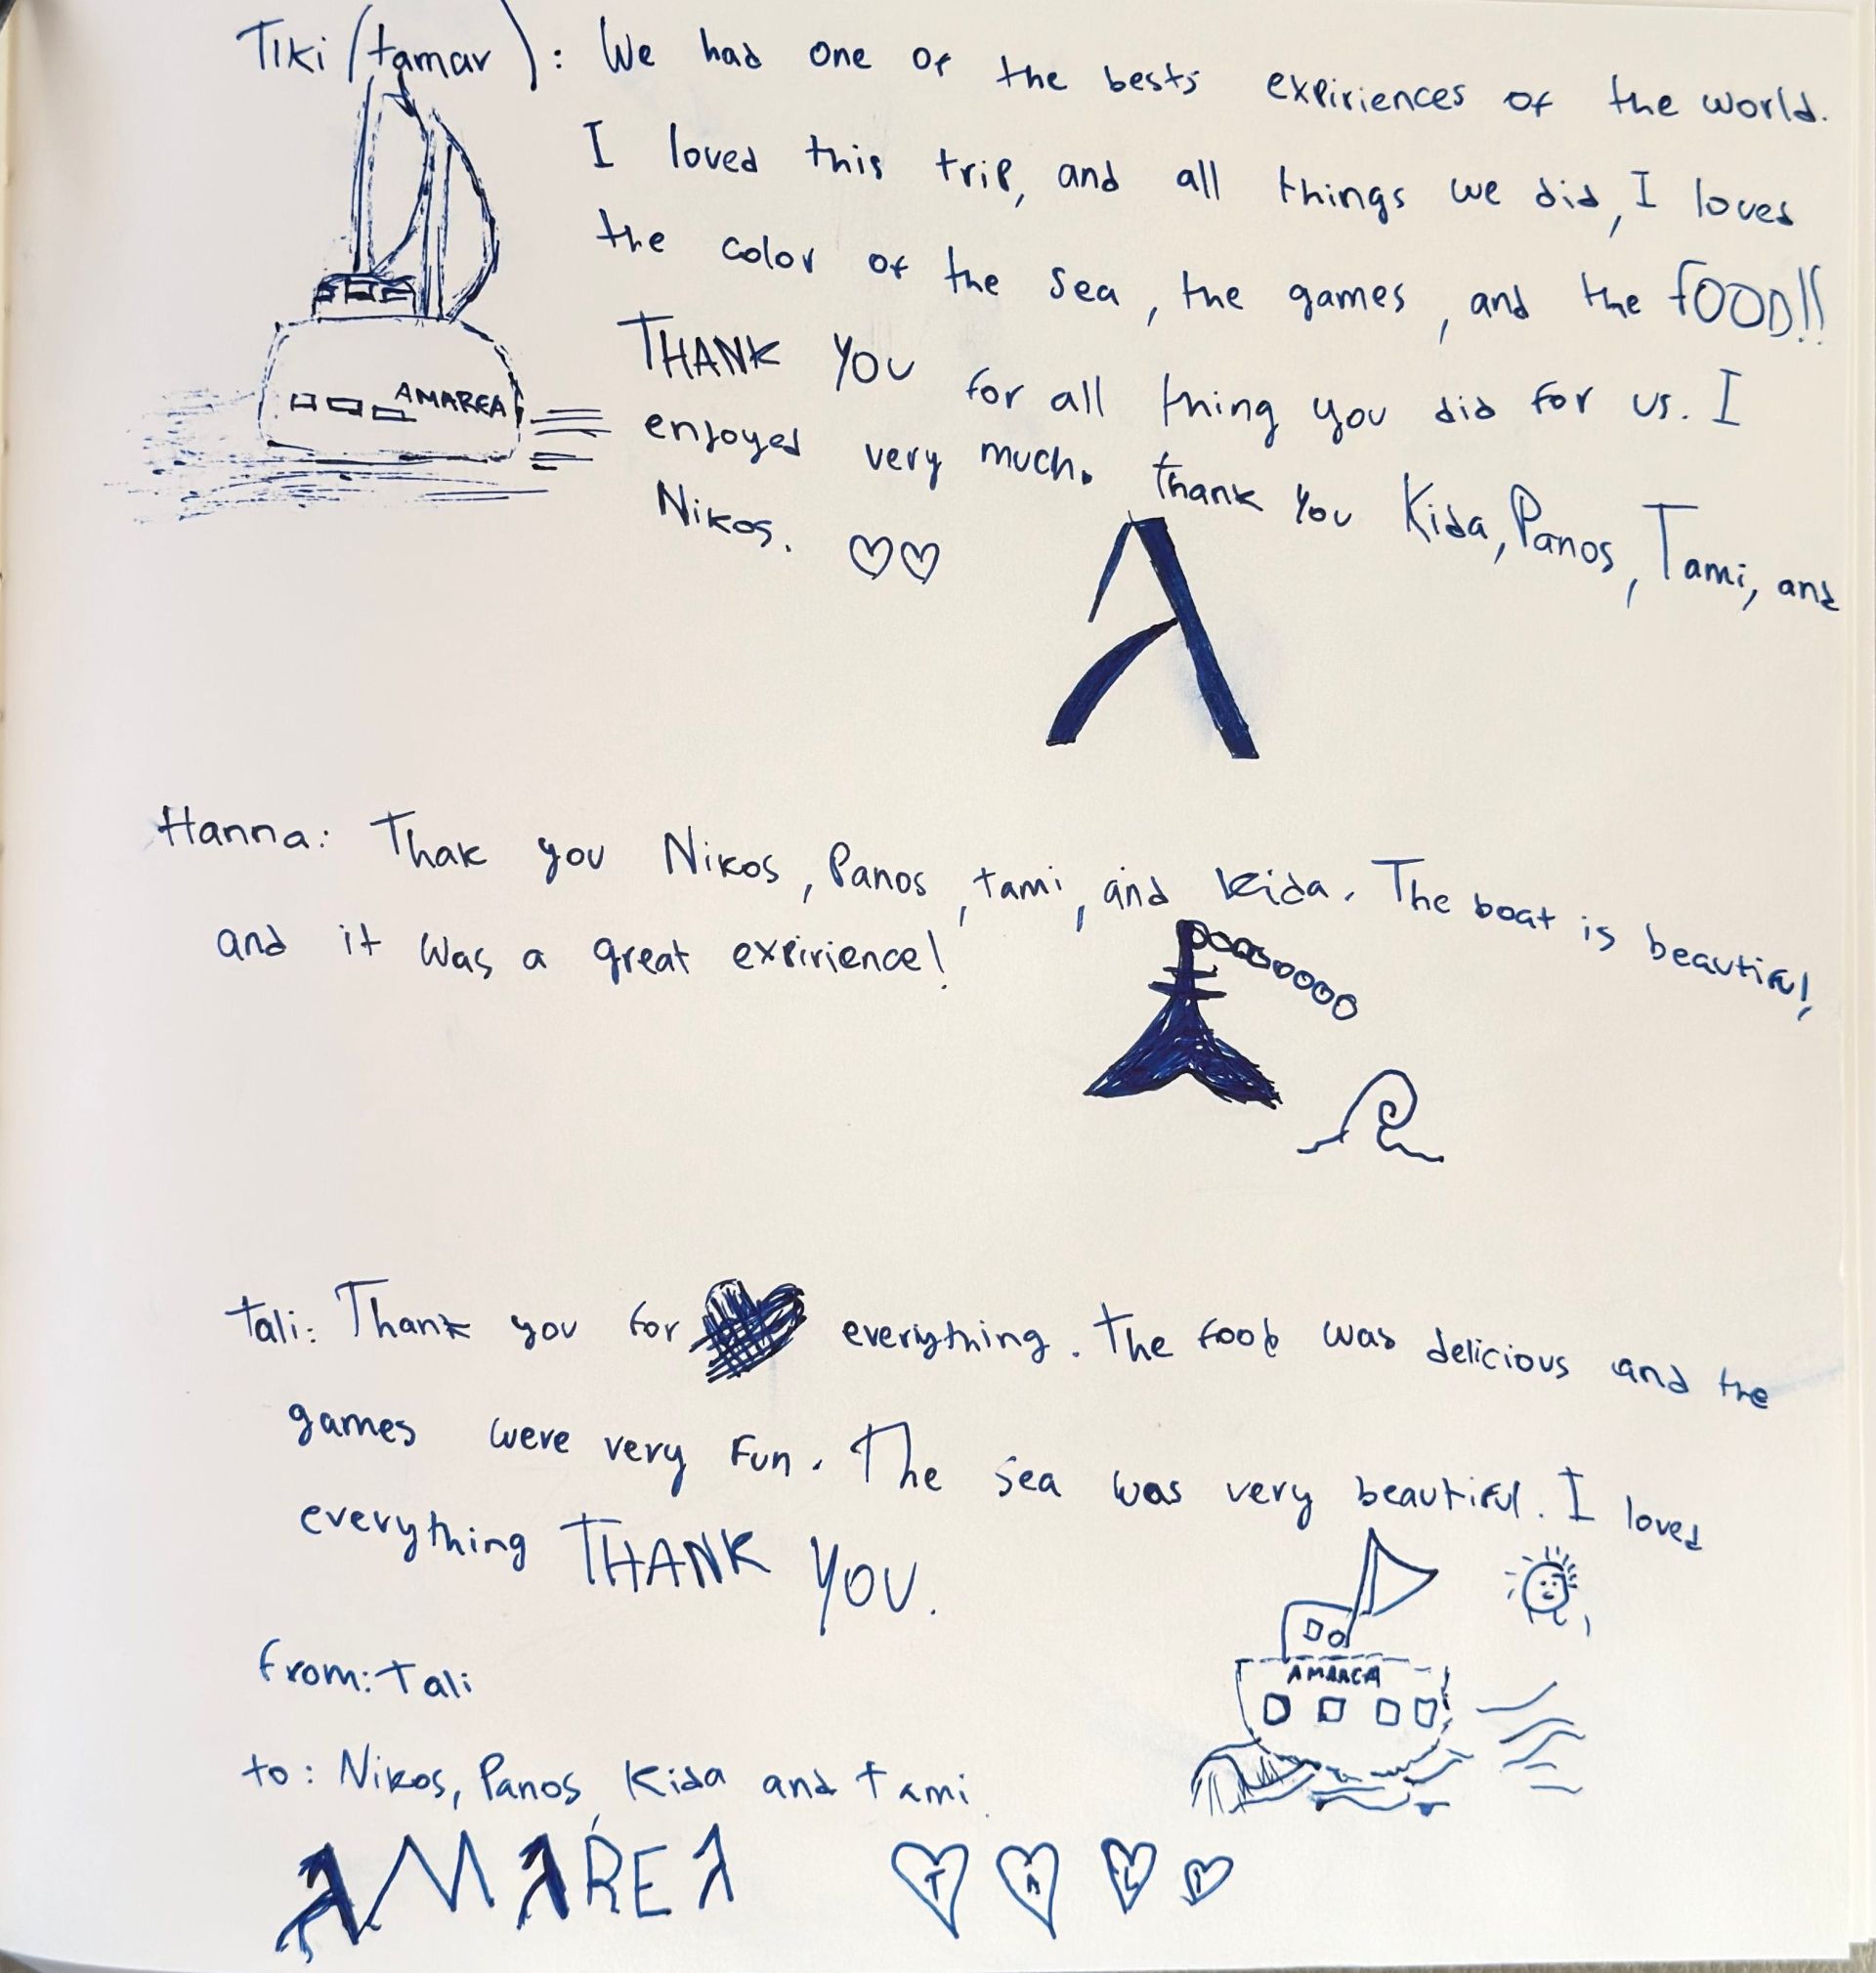 Tiki (tamar): We had one of the bests expiriences of the world.
I loved this trip, and all things we did, I loved
the color of the sea, the games, and the FOOD!!
THANK YOU for all thing you did for us. I
enjoyed very much. Thank you Kida, Panos, Tami, and
Nikos. ♡♡
AMAREA
Hanna: Thak you Nikos, Panos, tami, and Kida. The boat is beautiful,
and it was a great expirience!
tali: Thank you for everything. The food was delicious and the
games were very fun. The sea was very beautiful. I loved
everything THANK YOU.
from: tali
to: Nikos, Panos, Kida and tami.
AMAREA
AMAREA
T A L I